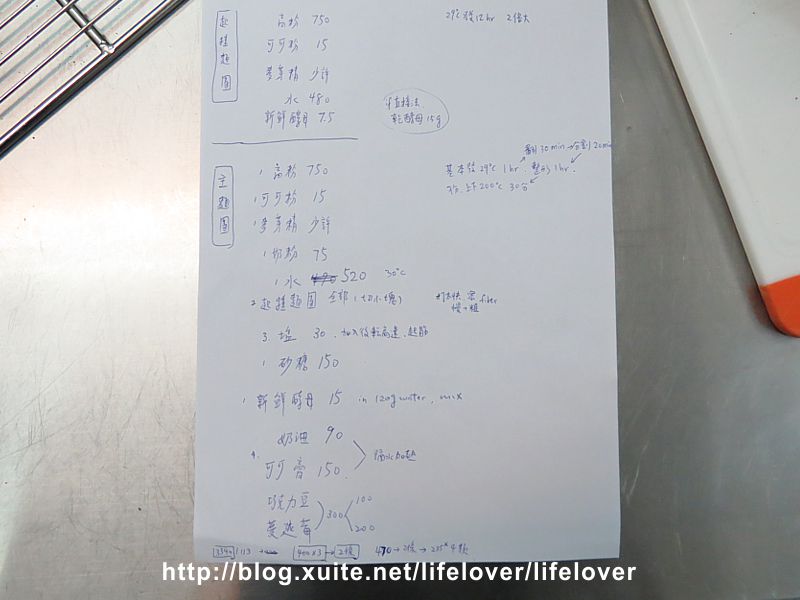 起種麵團
高粉 750
29℃ 發12hr 2倍大
可可粉 15
麥芽精 少許
水 480
直接法
新鮮酵母 7.5
乾酵母 15g
主麵團
1 高粉 750
翻 30min → 分割 20min
基本發 29℃ 1hr 整形 1hr.
1 可可粉 15
上下 200℃ 30分
1 麥芽精 少許
1 奶粉 75
1 水 520 30℃
2. 起種麵團 全部 (切小塊)
fiber
慢→粗
3. 塩 30. 加入後転高速.起筋
1 砂糖 150
1 新鮮酵母 15 in 120g water, mix
奶油 90
4. 隔水加熱
可可膏 150
巧克力豆
100
300
蔓越莓
200
400×3 → 2條
470 → 2條 → 235×4顆
http://blog.xuite.net/lifelover/lifelover